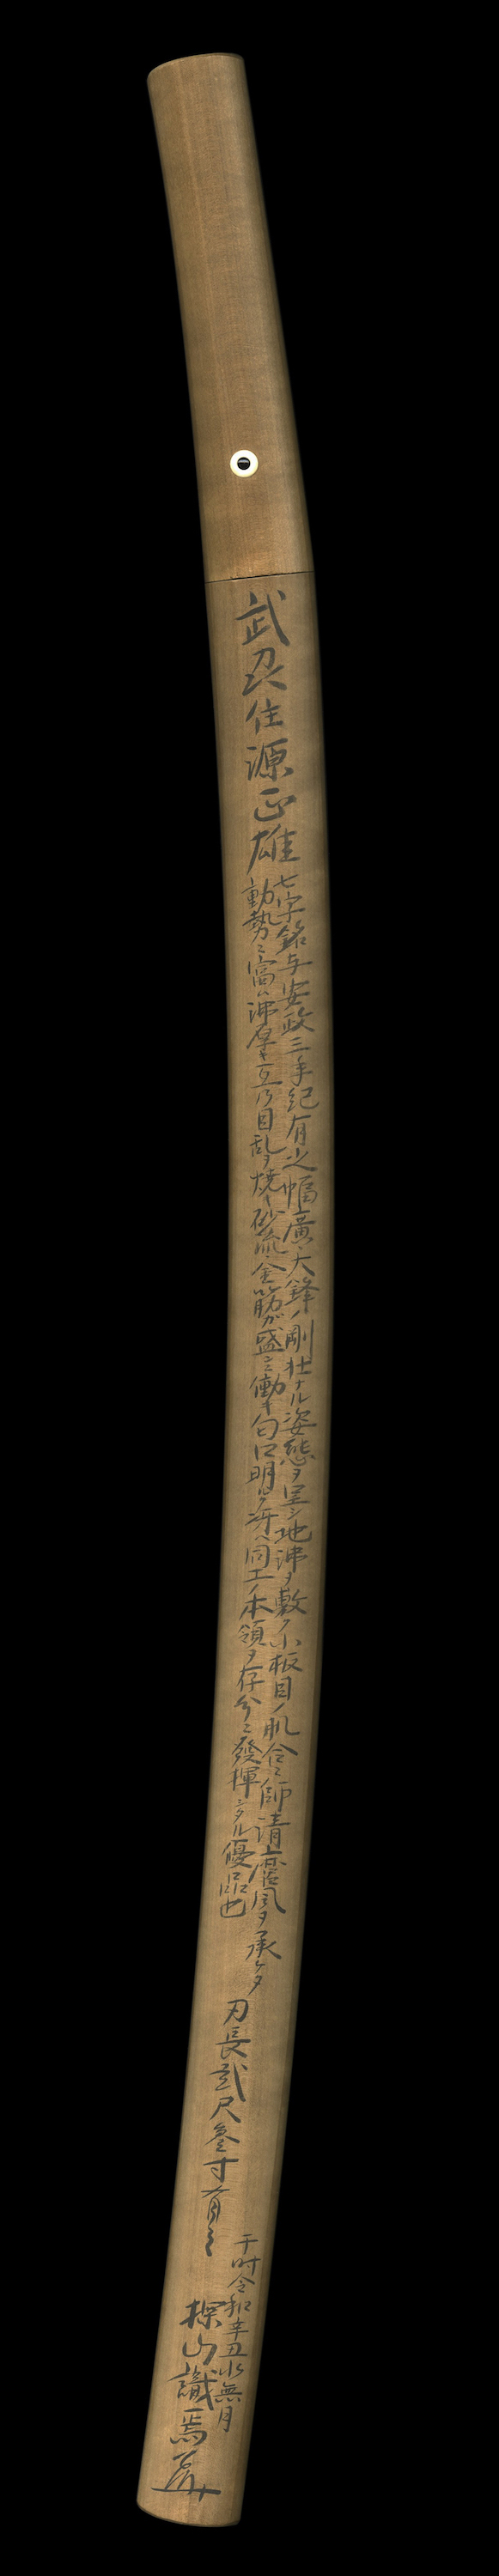 武刕住源正雄
七字銘与安政三年紀有之幅廣大鋒ノ剛壮ナル姿態ヲ呈シ地沸ヲ敷ク小板目ノ肌合ニ師清麿風ヲ承ケタ
動勢ニ富ム沸厚キ互乃目乱ヲ焼キ砂流金筋ガ盛ンニ働キ匂口明ルク冴ヘ同工ノ本領ヲ存分ニ發揮シタル優品也
刃長弐尺参寸有之
于时令和辛丑水無月
探山識焉